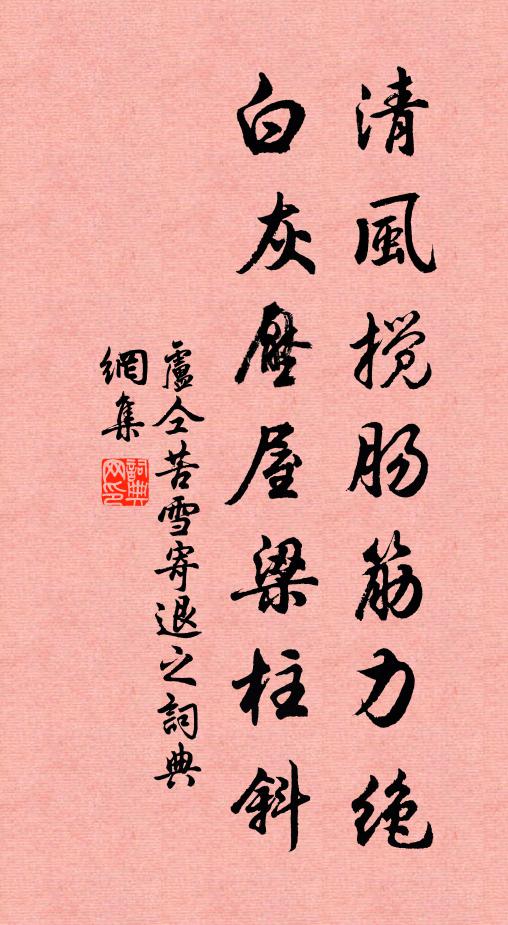 清風搅肠筋力绝
白灰壓屋梁柱斜
盧仝苦雪寄退之詞典
網集
詞典
网印